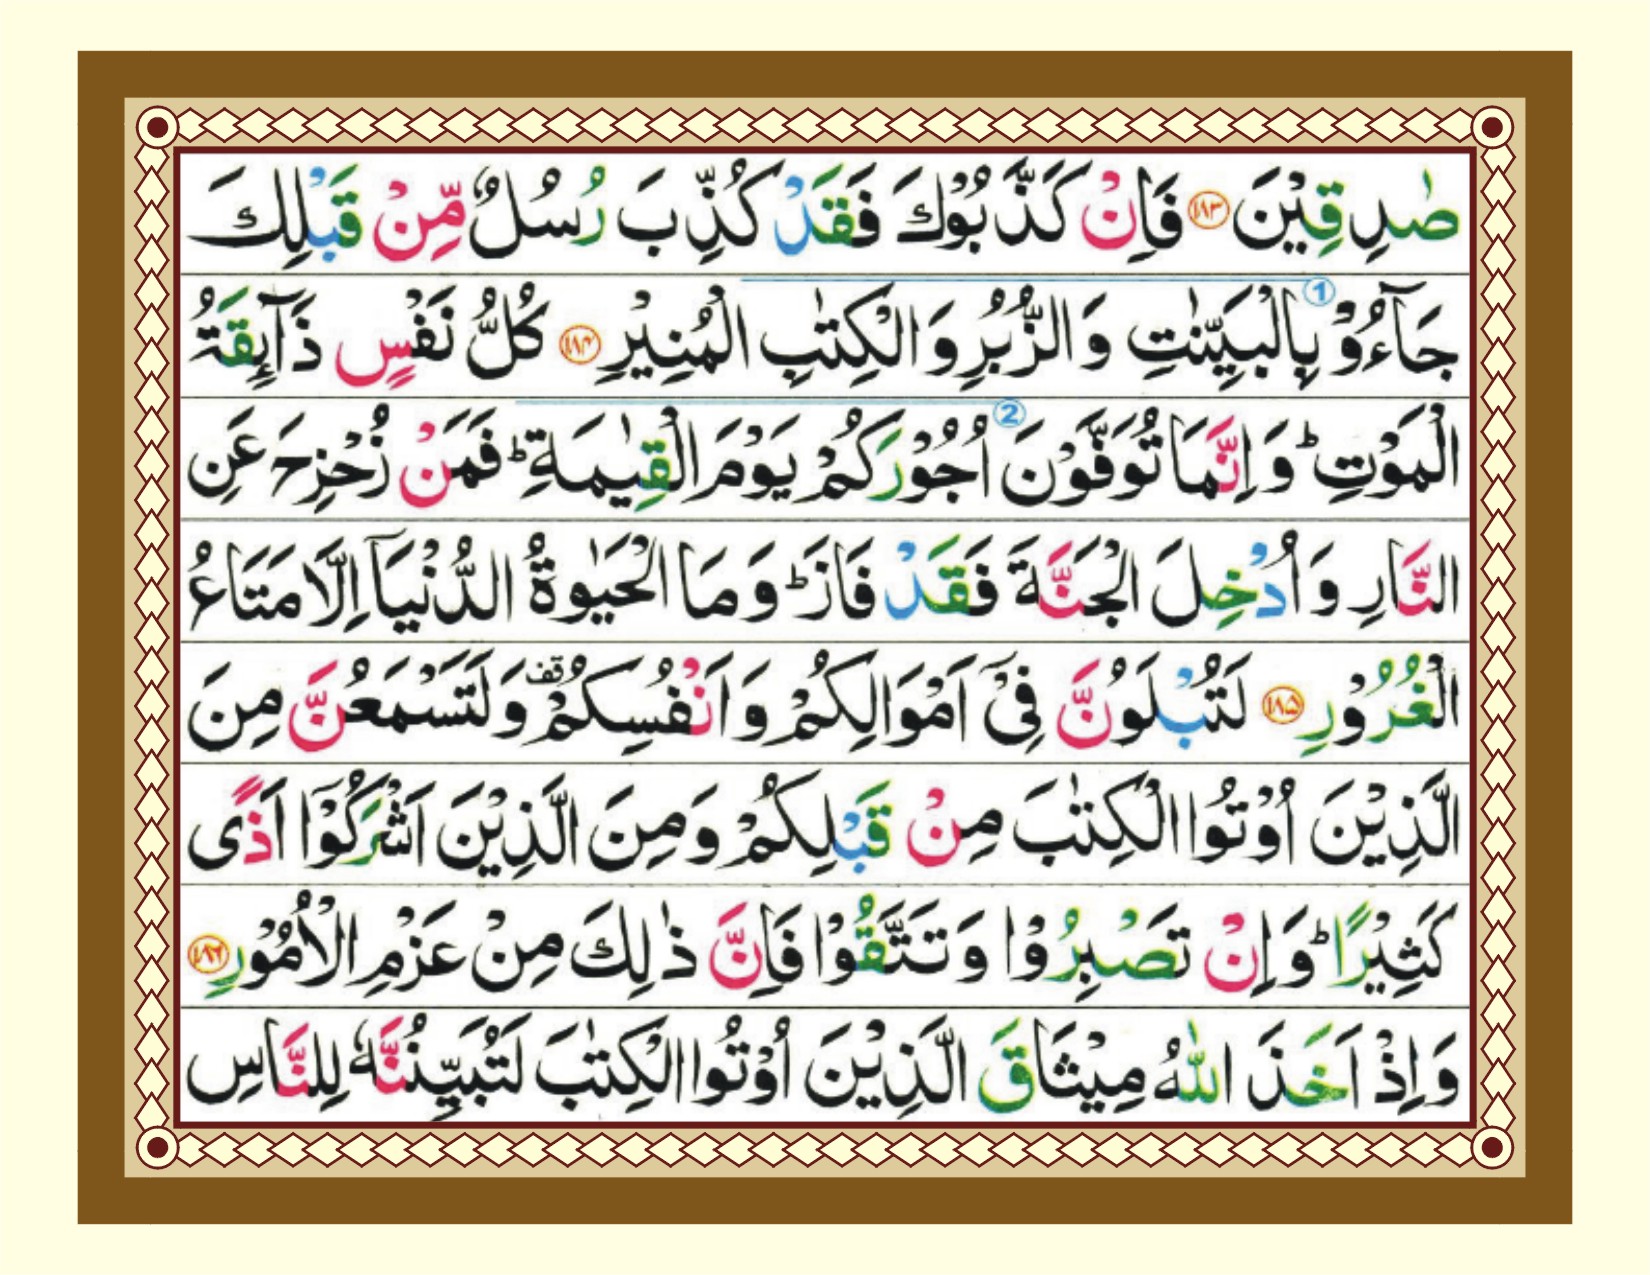 صٰدِقِيْنَ ﴿۱۸۳﴾ فَاِنْ كَذَّبُوْكَ فَقَدْ كُذِّبَ رُسُلٌ مِّنْ قَبْلِكَ
جَآءُوْ بِالْبَيِّنٰتِ وَالزُّبُرِ وَالْكِتٰبِ الْمُنِيْرِ ﴿۱۸۴﴾ كُلُّ نَفْسٍ ذَآئِقَةُ
الْمَوْتِ ؕ وَاِنَّمَا تُوَفَّوْنَ اُجُوْرَكُمْ يَوْمَ الْقِيٰمَةِ ؕ فَمَنْ زُحْزِحَ عَنِ
النَّارِ وَاُدْخِلَ الْجَنَّةَ فَقَدْ فَازَ ؕ وَمَا الْحَيٰوةُ الدُّنْيَاۤ اِلَّا مَتَاعُ
الْغُرُوْرِ ﴿۱۸۵﴾ لَتُبْلَوُنَّ فِىْۤ اَمْوَالِكُمْ وَاَنْفُسِكُمْ قف وَلَتَسْمَعُنَّ مِنَ
الَّذِيْنَ اُوْتُوا الْكِتٰبَ مِنْ قَبْلِكُمْ وَمِنَ الَّذِيْنَ اَشْرَكُوْۤا اَذًى
كَثِيْرًا ؕ وَاِنْ تَصْبِرُوْا وَتَتَّقُوْا فَاِنَّ ذٰلِكَ مِنْ عَزْمِ الْاُمُوْرِ ﴿۱۸۶﴾
وَاِذْ اَخَذَ اللّٰهُ مِيْثَاقَ الَّذِيْنَ اُوْتُوا الْكِتٰبَ لَتُبَيِّنُنَّهٗ لِلنَّاسِ